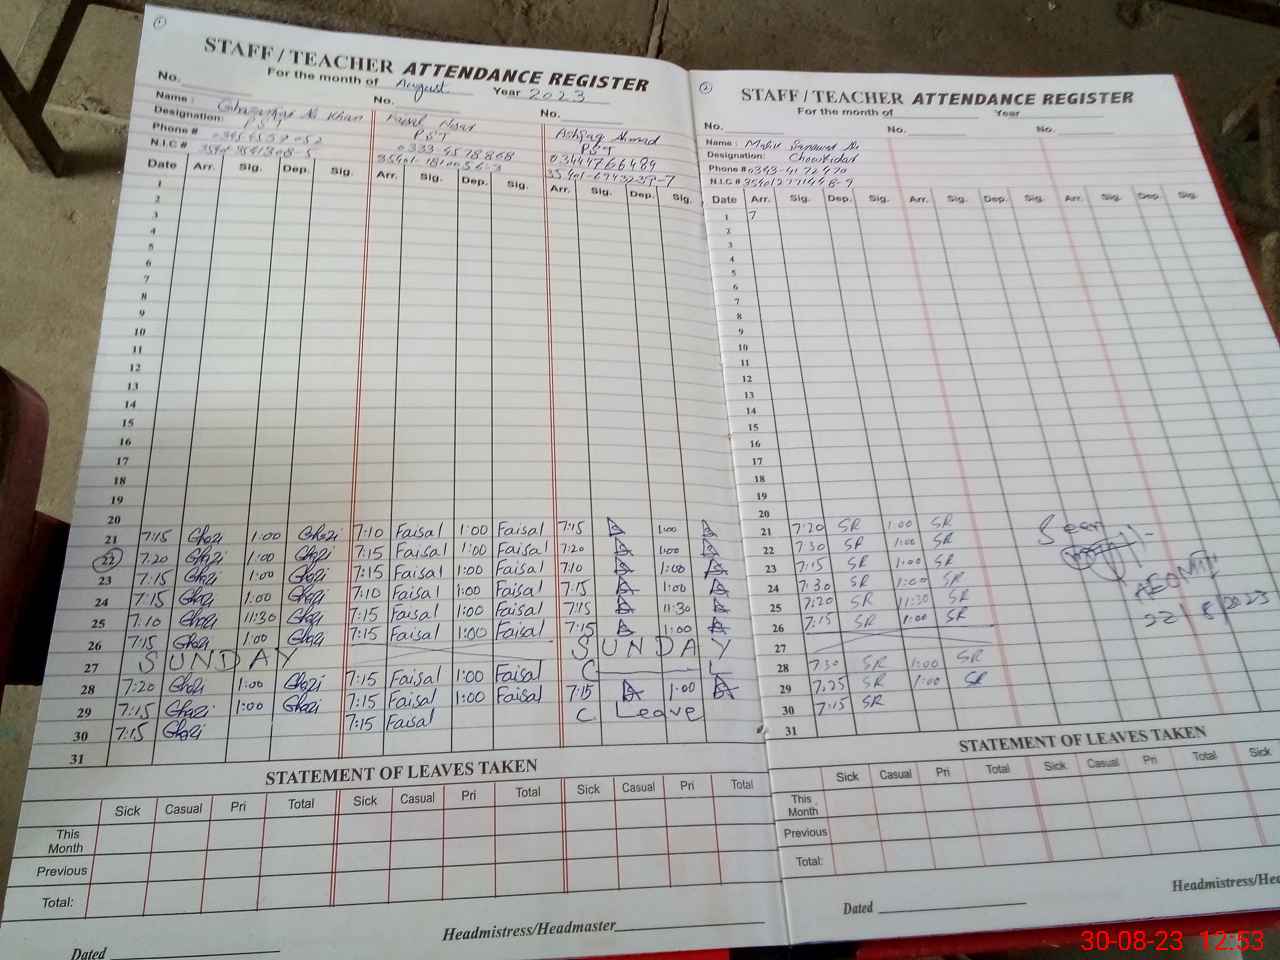 1
STAFF / TEACHER ATTENDANCE REGISTER
For the month of August Year 2023
No. No. No.
Name : Khan Faisal Ashfaq Ahmad
Designation: PST PST PST
Phone # 0333-4578868 03444766489
N.I.C #
Date Arr. Sig. Dep. Sig. Arr. Sig. Dep. Sig. Arr. Sig. Dep. Sig.
1
2
3
4
5
6
7
8
9
10
11
12
13
14
15
16
17
18
19
20
21 7:15 Ghazi 1:00 Ghazi 7:10 Faisal 1:00 Faisal 7:15 A 1:00 A
22 7:20 Ghazi 1:00 Ghazi 7:15 Faisal 1:00 Faisal 7:20 A 1:00 A
23 7:15 Ghazi 1:00 Ghazi 7:15 Faisal 1:00 Faisal 7:10 A 1:00 A
24 7:15 Ghazi 1:00 Ghazi 7:10 Faisal 1:00 Faisal 7:15 A 1:00 A
25 7:10 Ghazi 11:30 Ghazi 7:15 Faisal 1:00 Faisal 7:15 A 11:30 A
26 7:15 Ghazi 1:00 Ghazi 7:15 Faisal 1:00 Faisal 7:15 A 1:00 A
27 SUNDAY SUNDAY
28 7:20 Ghazi 1:00 Ghazi 7:15 Faisal 1:00 Faisal C L
29 7:15 Ghazi 1:00 Ghazi 7:15 Faisal 1:00 Faisal 7:15 A 1:00 A
30 7:15 Ghazi 7:15 Faisal C Leave
31
STATEMENT OF LEAVES TAKEN
Sick Casual Pri Total Sick Casual Pri Total Sick Casual Pri Total
This Month
Previous
Total:
Headmistress/Headmaster
Dated
2
STAFF / TEACHER ATTENDANCE REGISTER
For the month of Year
No. No. No.
Name :
Designation: Chowkidar
Phone # 0343-4172470
N.I.C #
Date Arr. Sig. Dep. Sig. Arr. Sig. Dep. Sig. Arr. Sig. Dep. Sig.
1 7
2
3
4
5
6
7
8
9
10
11
12
13
14
15
16
17
18
19
20
21 7:20 SR 1:00 SR
22 7:30 SR 1:00 SR
23 7:15 SR 1:00 SR
24 7:30 SR 1:00 SR
25 7:20 SR 11:30 SR
26 7:15 SR 1:00 SR
27
28 7:30 SR 1:00 SR
29 7:25 SR 1:00 SR
30 7:15 SR
31
Seen
22/8/2023
STATEMENT OF LEAVES TAKEN
Sick Casual Pri Total Sick Casual Pri Total Sick
This Month
Previous
Total:
Headmistress/Hea
Dated
30-08-23 12:53